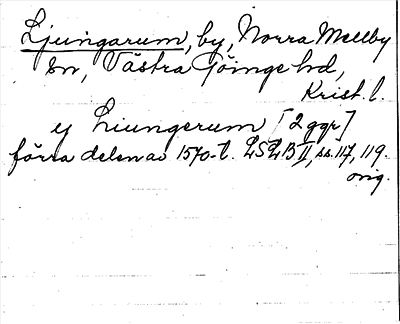 Ljungarum, by, Norra Mellby
sn, Västra Göinge hd,
Krist. l.
y Liungerum [2 ggr]
förra delen av 1570-t. LSLB II, ss. 117, 119.
orig.